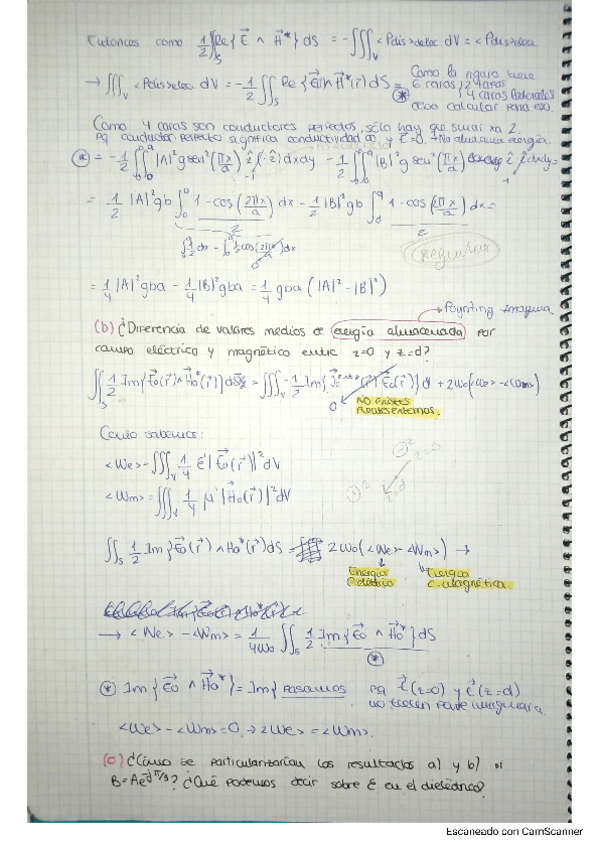 Entonces como 1/2 ∬_S Re{E⃗ ∧ H⃗*} dS = -∭_V <Pdis>deloc dV = <Pdis>
→ ∭_V <Pdis>deloc dV = -1/2 ∬_S Re{E⃗ ∧ H⃗*(r⃗)} dS = (*) Como la figura tiene
6 caras 2 tapas
4 caras laterales
debo calcular para eso.
Como 4 caras son conductores perfectos, sólo hay que sumar 2.
pq conductor perfecto significa conductividad ∞ y E=0. → No almacena energía.
(*) = -1/2 ∫∫ |A|² g sen²(πx/a) dxdy - 1/2 ∫∫ |B|² g sen²(πx/a) dxdy =
= 1/2 |A|² gb ∫₀ᵃ 1-cos(2πx/a)/2 dx - 1/2 |B|² gb ∫₀ᵃ 1-cos(2πx/a)/2 dx =
∫ 1/2 dx - ∫ 1/2 cos(2πx/a) dx
0
(preguntar)
= 1/4 |A|² gba - 1/4 |B|² gba = 1/4 gba (|A|² - |B|²)
→ Poynting Imagina.
(b) ¿Diferencia de valores medios de energía almacenada por
campo eléctrico y magnético entre z=0 y z=d?
∬_S 1/2 Im{E⃗o(r⃗) ∧ H⃗o*(r⃗)} dS = ∭_V -1/2 Im{J⃗o*(r⃗) E⃗o(r⃗)} d + 2ω₀(<We> - <Wm>)
0
NO EXISTES
Reales externos.
Como sabemos:
<We> = ∭_V 1/4 ε' |E⃗o(r⃗)|² dV
<Wm> = ∭_V 1/4 μ' |H⃗o(r⃗)|² dV
z=0
z=d
∬_S 1/2 Im{E⃗o(r⃗) ∧ Ho*(r⃗)} dS = 2ω₀(<We> - <Wm>) →
Energía Energía
C. eléctrico C. magnética
→ <We> - <Wm> = 1/4ω₀ ∬_S 1/2 Im{E⃗o ∧ H⃗o*} dS
(*)
(*) Im{E⃗o ∧ H⃗o*} = Im{ pq (z=0) y (z=d)
no tienen parte imaginaria.
<We> - <Wm> = 0 → <We> = <Wm>.
(c) ¿Cómo se particularizarían los resultados a) y b) si
B=Ae^-jπ/3? ¿Qué podemos decir sobre E en el dieléctrico?
Escaneado con CamScanner